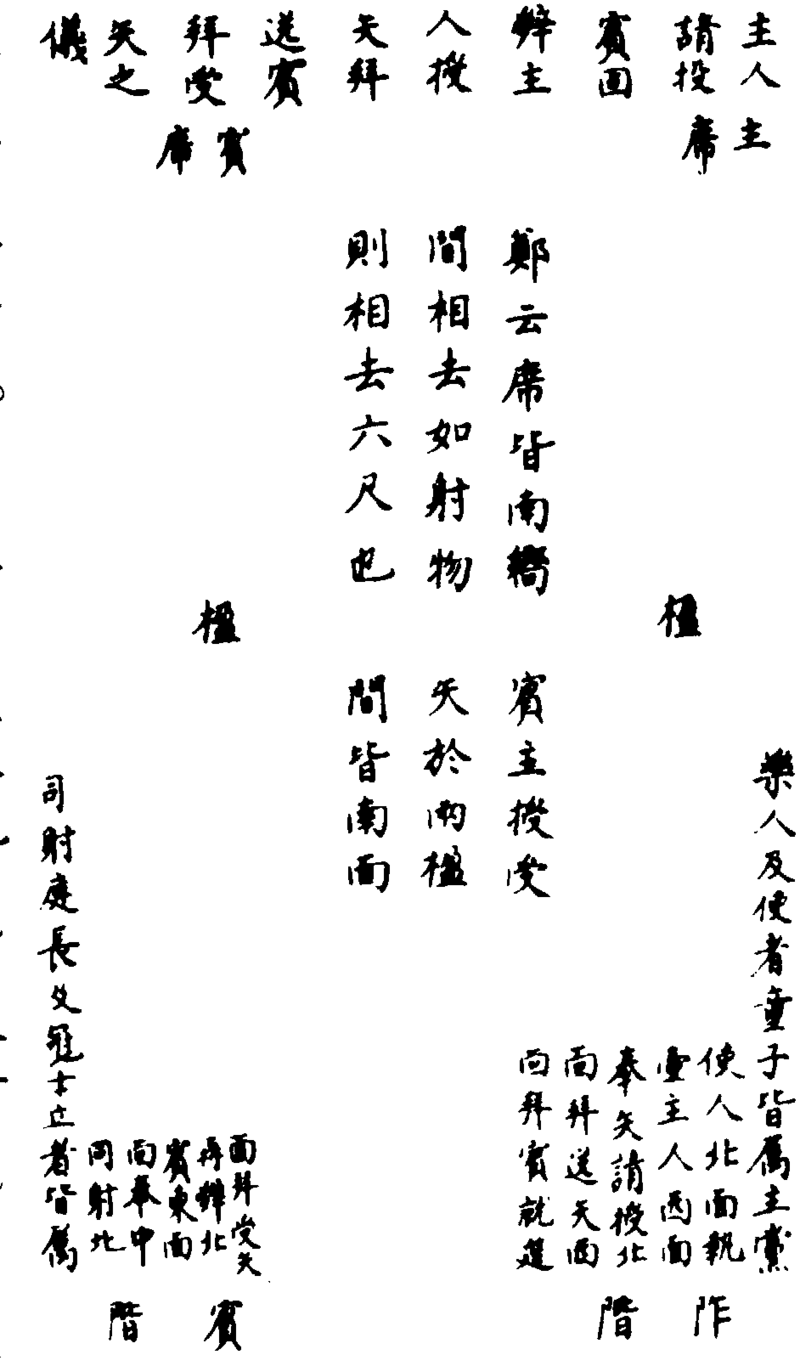 主人
請投
賓固
辭主
人授
矢拜
送賓
拜受
矢之
儀
主
席
賓
席
鄭云席皆南嚮
間相去如射物
則相去六尺也
楹
楹
賓主授受
矢於兩楹
間皆南面
樂人及使者童子皆屬主黨
使人北面執
壺主人西面
奉矢請投北
面拜送矢西
向拜賓就筵
司射庭長及冠士立者皆屬
面拜受矢
再辭北
賓東面
面奉中
司射北
阼
階
賓
階